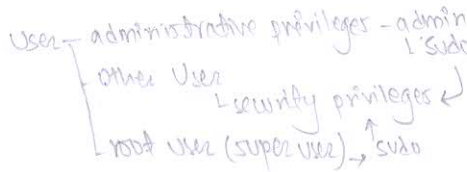 User - administrative privileges - admin
└ sudo
- other User
└ security privileges
└ root user (super user) → sudo